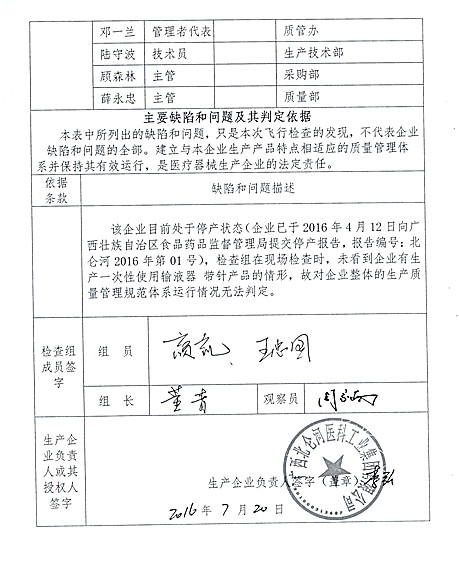 邓一兰 管理者代表 质管办
陆守波 技术员 生产技术部
顾森林 主管 采购部
薛永忠 主管 质量部
主要缺陷和问题及其判定依据
本表中所列出的缺陷和问题，只是本次飞行检查的发现，不代表企业
缺陷和问题的全部。建立与本企业生产产品特点相适应的质量管理体
系并保持其有效运行，是医疗器械生产企业的法定责任。
依据
条款
缺陷和问题描述
该企业目前处于停产状态（企业已于 2016 年 4 月 12 日向广
西壮族自治区食品药品监督管理局提交停产报告，报告编号：北
仑河 2016 年第 01 号），检查组在现场检查时，未看到企业有生
产一次性使用输液器 带针产品的情形，故对企业整体的生产质
量管理规范体系运行情况无法判定。
检查组
成员签
字
组 员
组 长 董青 观察员
生产企
业负责
人或其
授权人
签字
广西北仑河医科工业集团有限公司
生产企业负责人签字（盖章）
2016 年 7 月 20 日